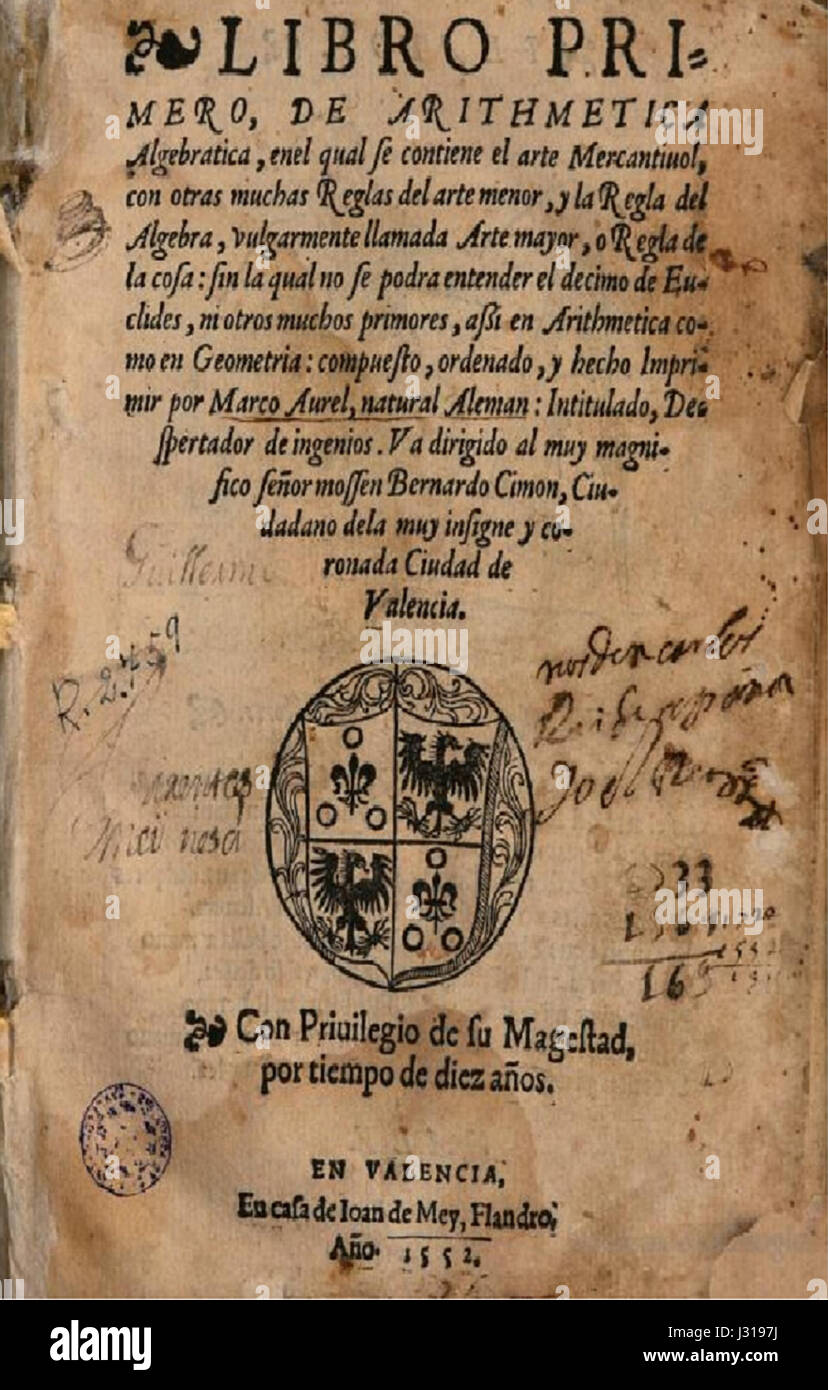 LIBRO PRI-
MERO, DE ARITHMETICA
Algebratica, enel qual ſe contiene el arte Mercantiuol,
con otras muchas Reglas del arte menor, y la Regla del
Algebra, vulgarmente llamada Arte mayor, o Regla de
la coſa: ſin la qual no ſe podra entender el decimo de Eu-
clides, ni otros muchos primores, aſsi en Arithmetica co-
mo en Geometria: compueſto, ordenado, y hecho Impri-
mir por Marco Aurel, natural Aleman: Intitulado, De-
ſpertador de ingenios. Va dirigido al muy magni-
fico ſeñor moſſen Bernardo Cimon, Ciu-
dadano dela muy inſigne y co-
ronada Ciudad de
Valencia.
R. 2.759
Con Priuilegio de ſu Mageſtad,
por tiempo de diez años.
EN VALENCIA,
En caſa de Ioan de Mey, Flandro,
Año. 1552.
alamy
alamy stock photo
J3197J
www.alamy.com